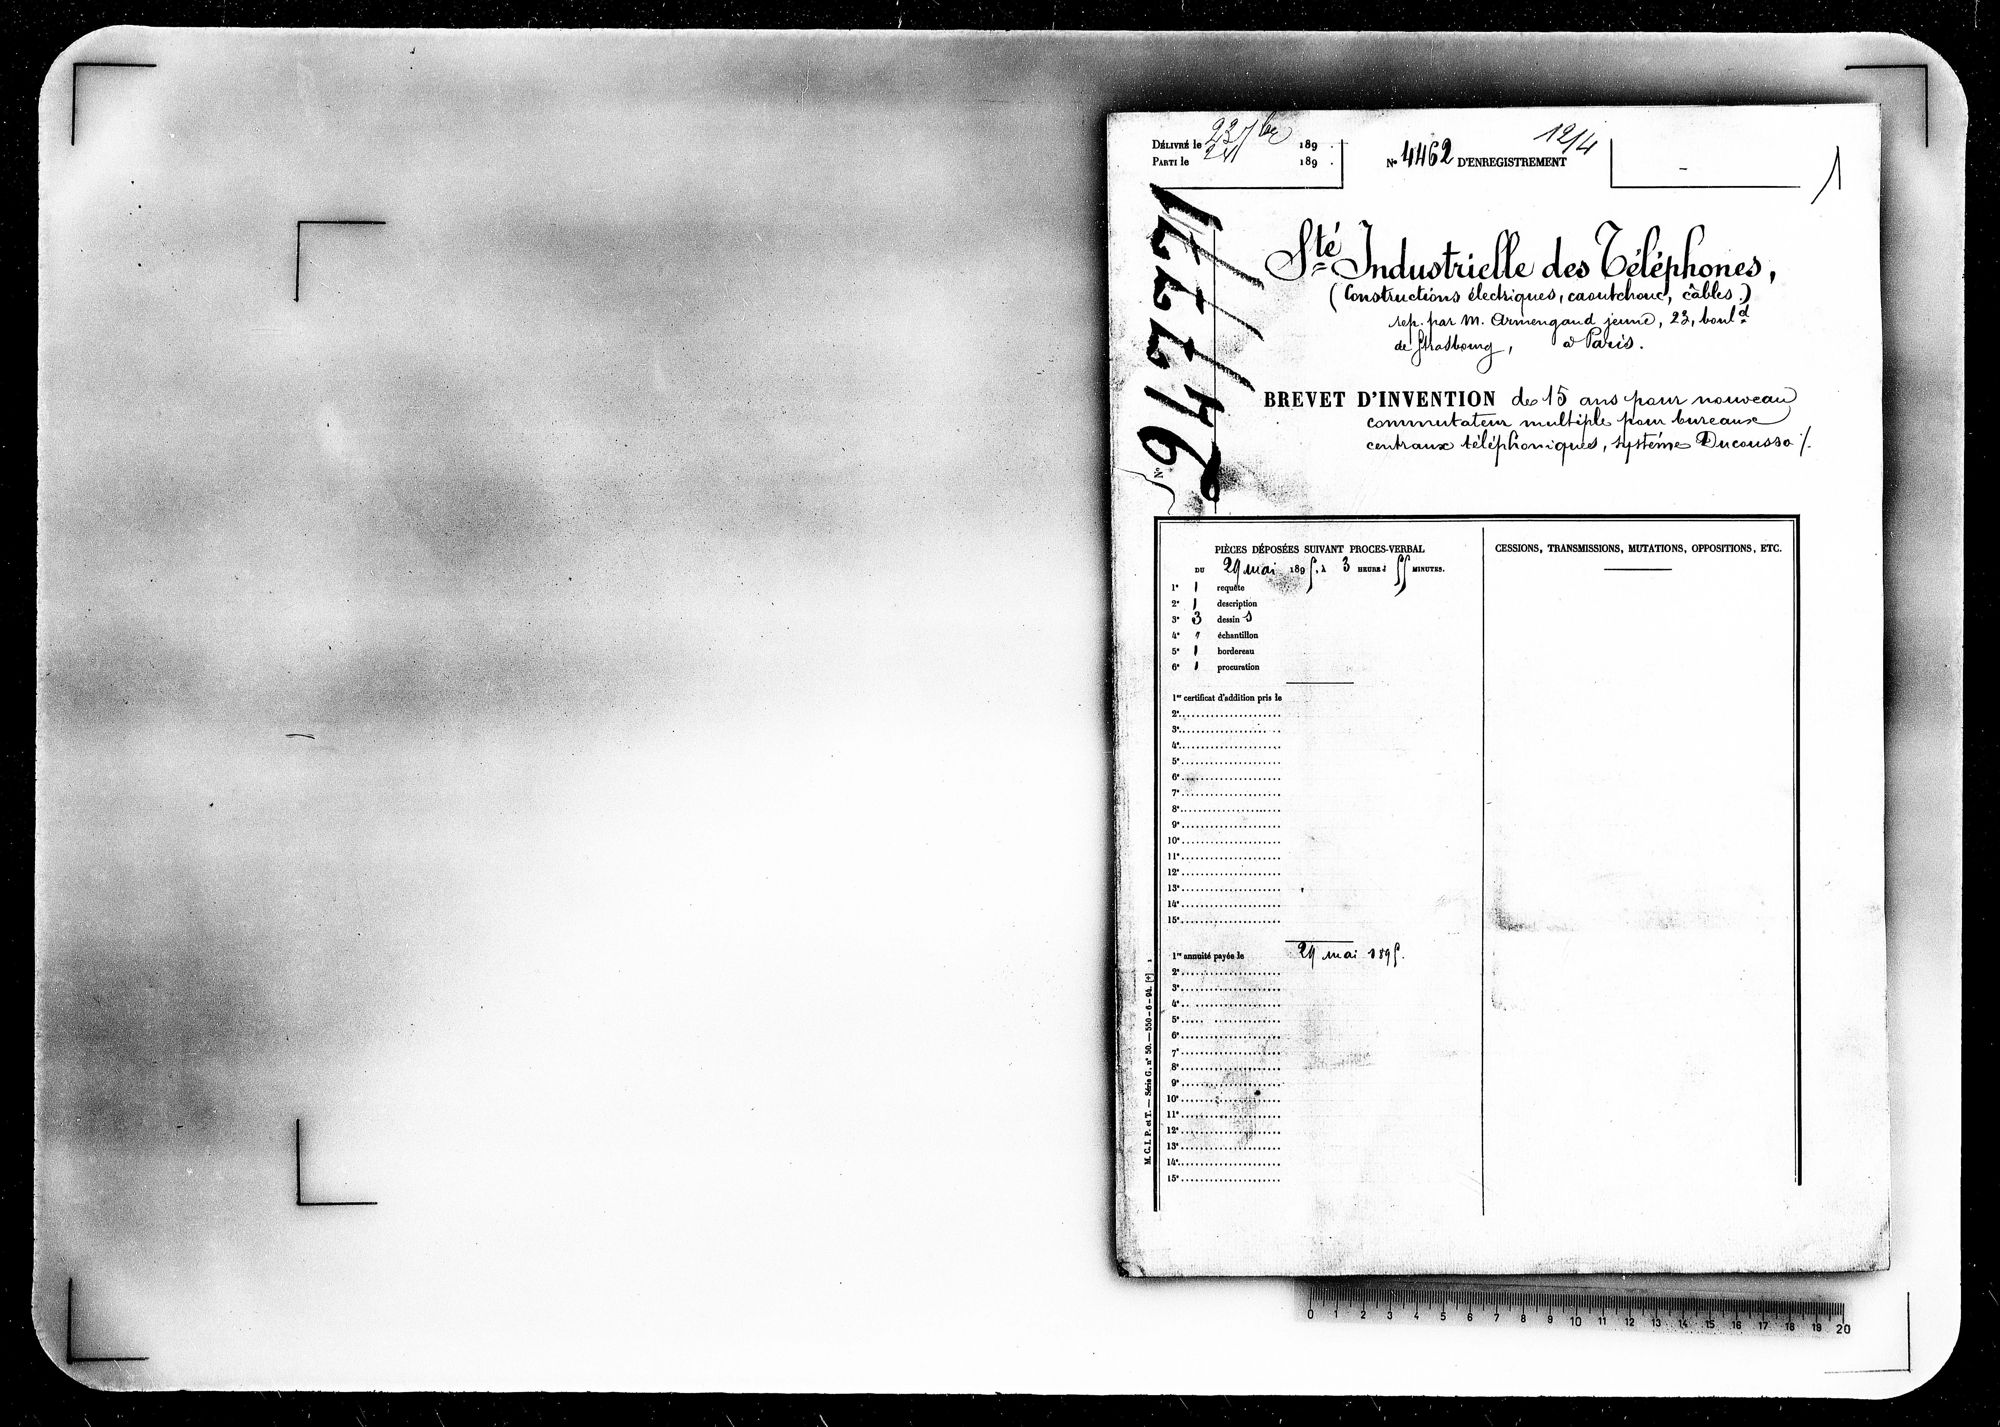 DÉLIVRÉ le 23 7bre 189 .
PARTI le 24 189 .
N° 4462 D'ENREGISTREMENT
12/4
1
N°
Sté Industrielle des Téléphones,
(Constructions électriques, caoutchouc, câbles.)
rep. par M. Armengaud jeune, 23, boul.d
de Strasbourg, à Paris.
BREVET D'INVENTION de 15 ans pour nouveau
commutateur multiple pour bureaux
centraux téléphoniques, système Ducousso
PIÈCES DÉPOSÉES SUIVANT PROCES-VERBAL
DU 29 mai 1895, à 3 HEURES 55 MINUTES.
1° 1 requête
2° 1 description
3° 3 dessins
4° " échantillon
5° 1 bordereau
6° 1 procuration
1er certificat d'addition pris le
2e
3e
4e
5e
6e
7e
8e
9e
10e
11e
12e
13e
14e
15e
1re annuité payée le 29 mai 1895.
2e
3e
4e
5e
6e
7e
8e
9e
10e
11e
12e
13e
14e
15e
CESSIONS, TRANSMISSIONS, MUTATIONS, OPPOSITIONS, ETC.
M. C. I. P. et T. — Série G. n° 50. — 550-6-94. [+] 1
0 1 2 3 4 5 6 7 8 9 10 11 12 13 14 15 16 17 18 19 20